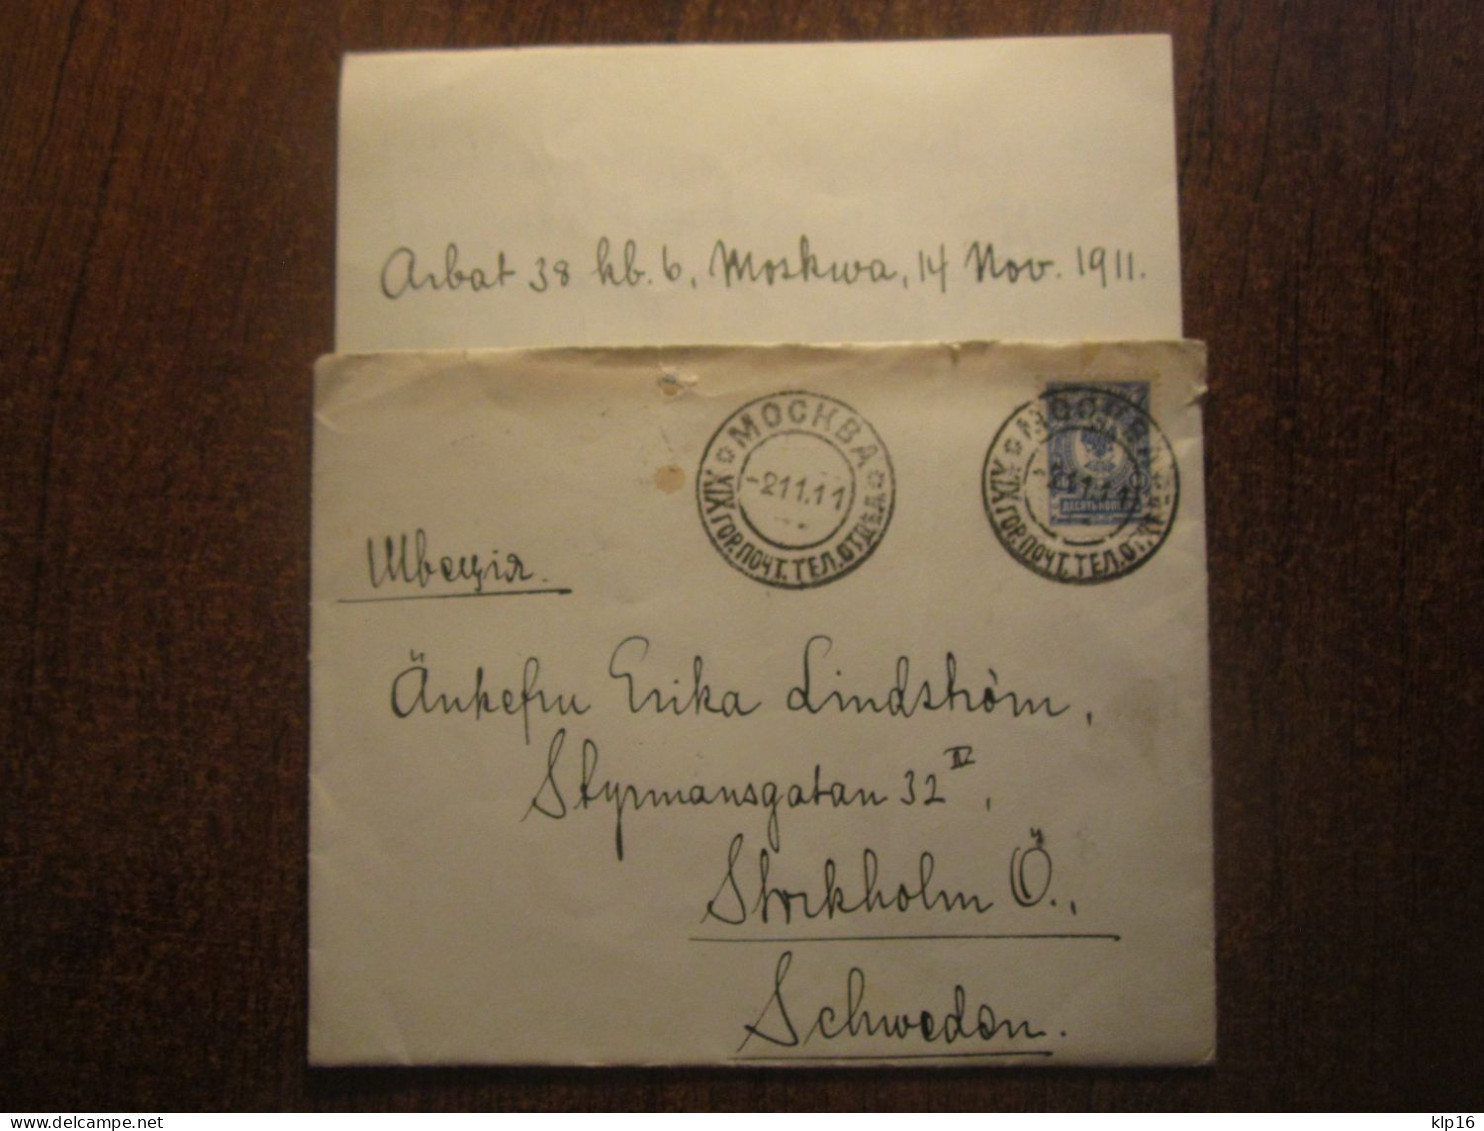 Arbat 38 kb. 6, Moskwa, 14 Nov. 1911.
МОСКВА
-2 11.11
XIX ГОР. ПОЧТ. ТЕЛ. ОТДѢЛ.
МОСКВА
-2 11.11
XIX ГОР. ПОЧТ. ТЕЛ. ОТДѢЛ.
Швеція.
Änkefru Erika Lindström,
Styrmansgatan 32 IV,
Stockholm Ö.,
Schweden.
delcampe.net
klp16